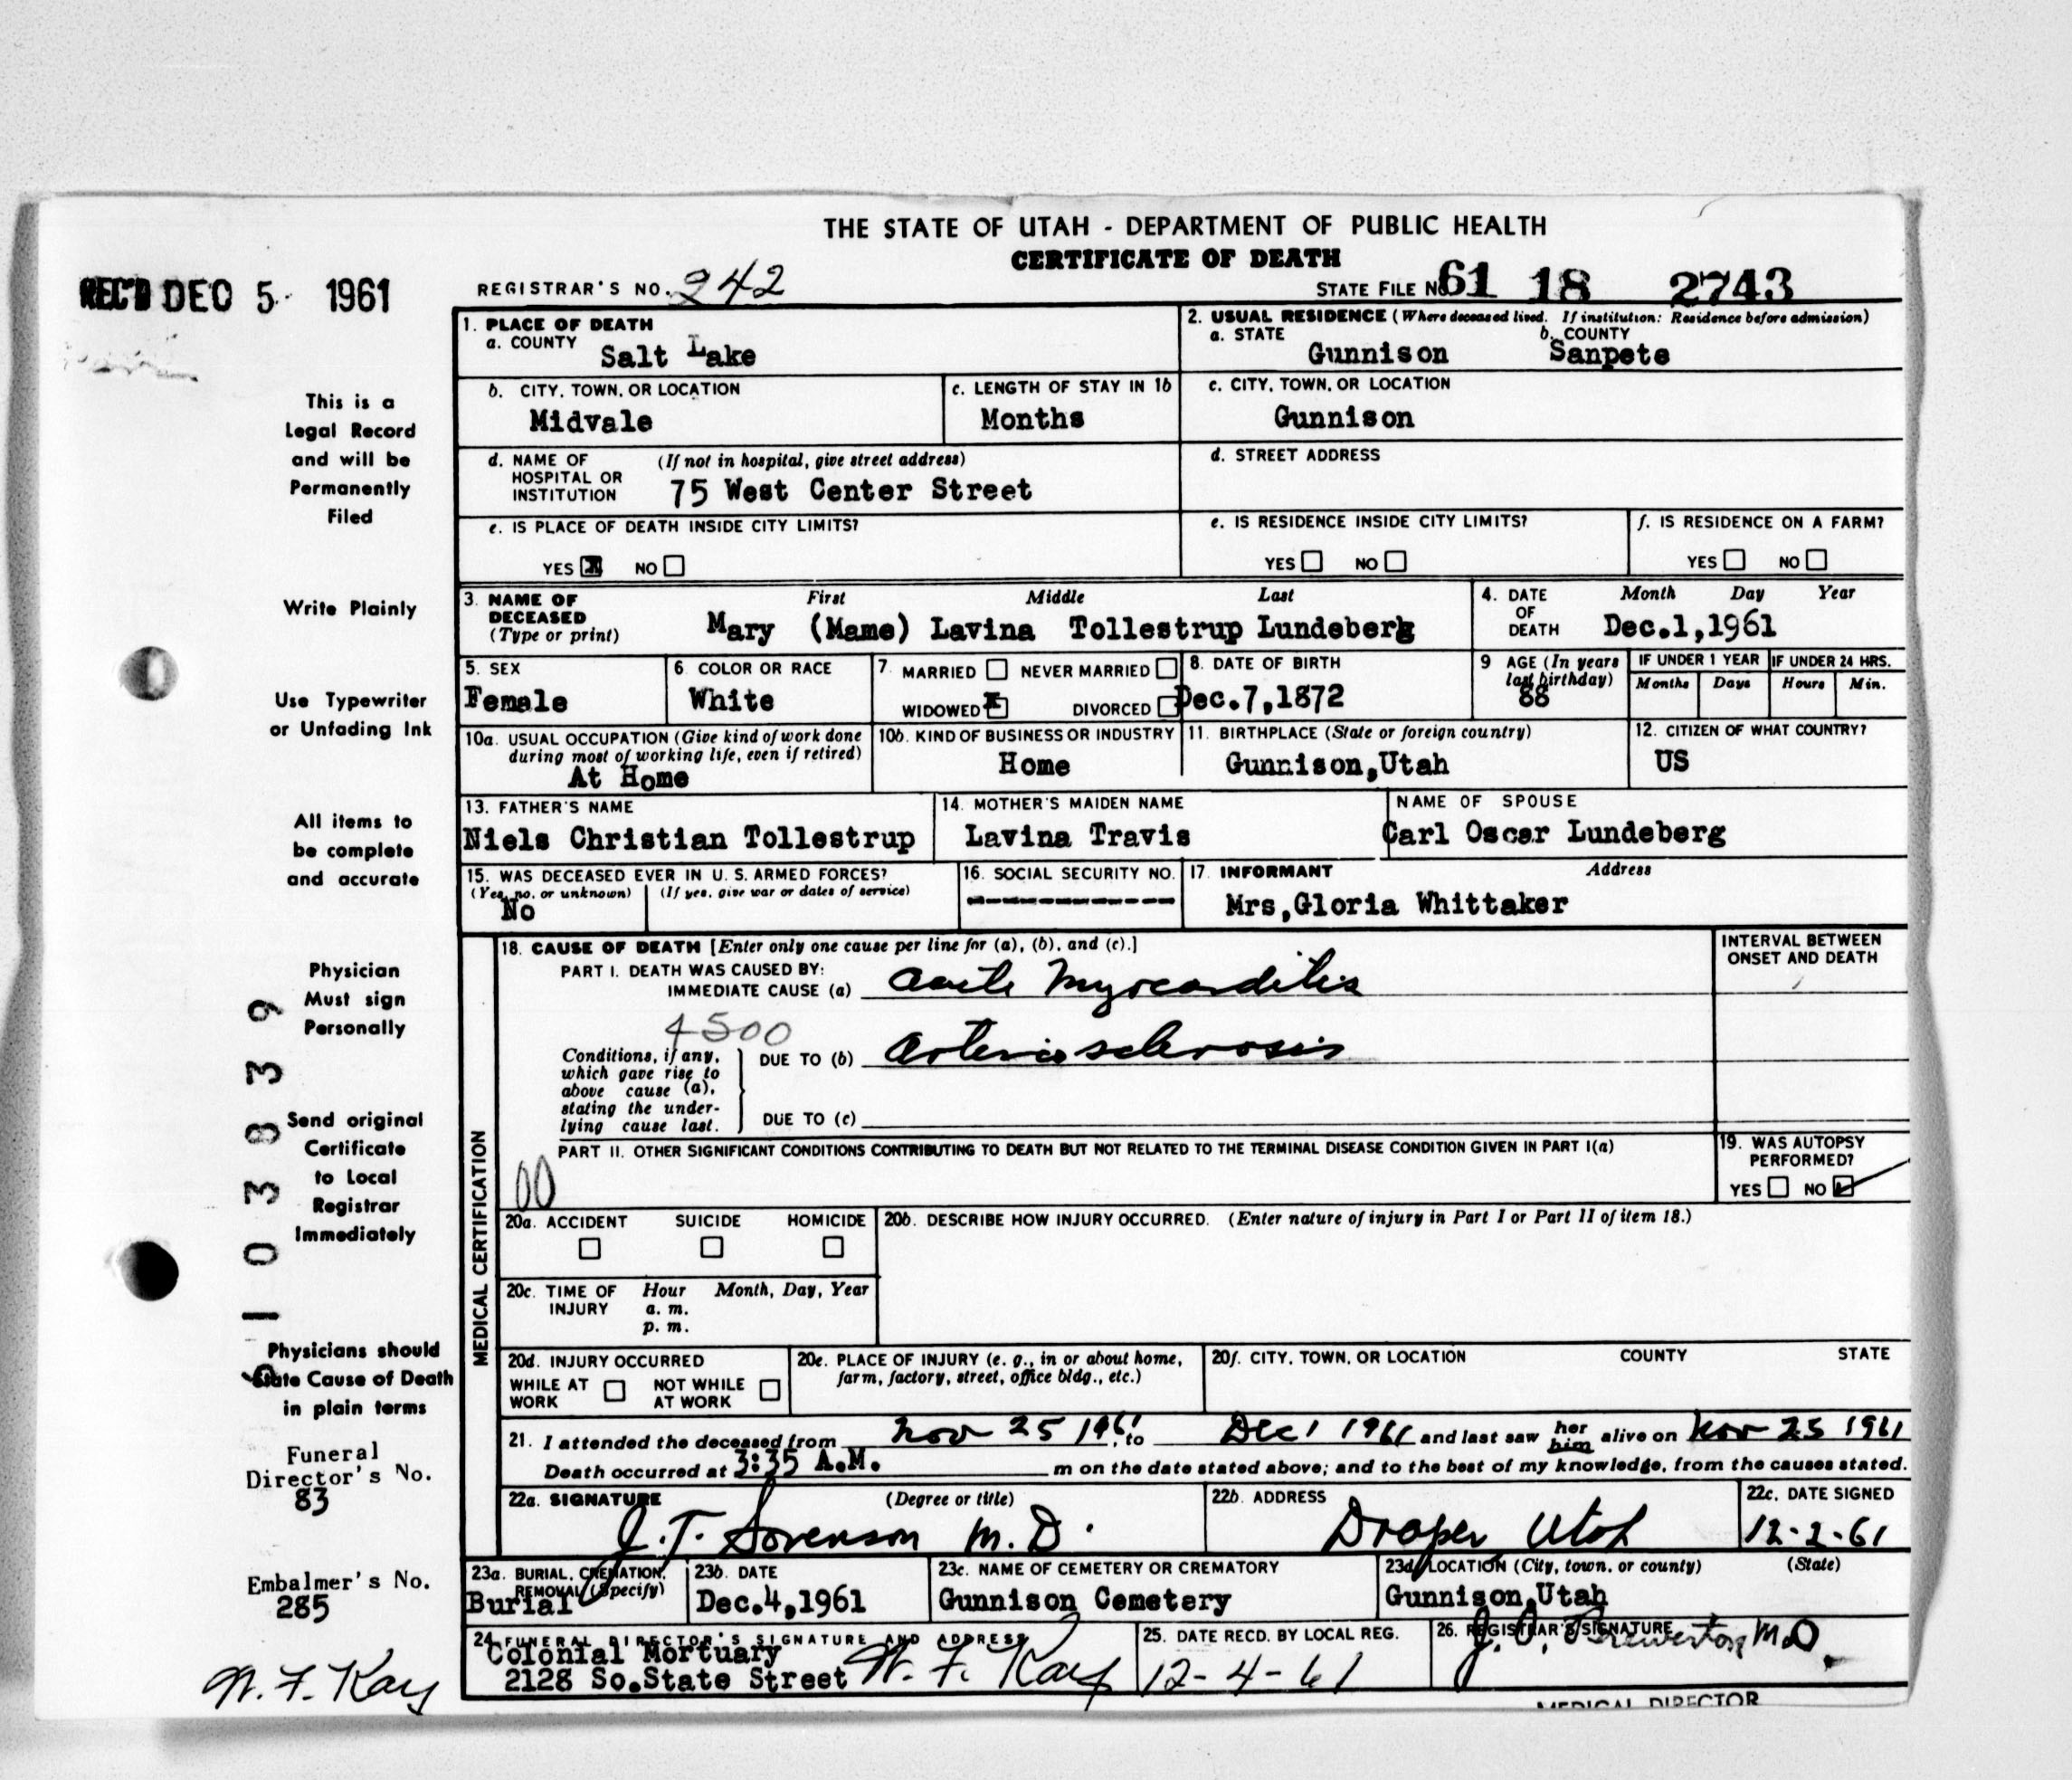 THE STATE OF UTAH - DEPARTMENT OF PUBLIC HEALTH
CERTIFICATE OF DEATH
REC'D DEC 5 1961
REGISTRAR'S NO. 242
STATE FILE NO 61 18 2743
1. PLACE OF DEATH
a. COUNTY Salt Lake
2. USUAL RESIDENCE (Where deceased lived. If institution: Residence before admission)
a. STATE Gunnison b. COUNTY Sanpete
b. CITY, TOWN, OR LOCATION Midvale
c. LENGTH OF STAY IN 1b Months
c. CITY, TOWN, OR LOCATION Gunnison
d. NAME OF HOSPITAL OR INSTITUTION (If not in hospital, give street address)
75 West Center Street
d. STREET ADDRESS
e. IS PLACE OF DEATH INSIDE CITY LIMITS?
YES X NO
e. IS RESIDENCE INSIDE CITY LIMITS?
YES NO
f. IS RESIDENCE ON A FARM?
YES NO
3. NAME OF DECEASED (Type or print)
First Middle Last
Mary (Mame) Lavina Tollestrup Lundeberg
4. DATE OF DEATH Month Day Year
Dec.1,1961
5. SEX Female
6. COLOR OR RACE White
7. MARRIED NEVER MARRIED
WIDOWED X DIVORCED
8. DATE OF BIRTH Dec.7,1872
9 AGE (In years last birthday) 88
IF UNDER 1 YEAR Months Days
IF UNDER 24 HRS. Hours Min.
10a. USUAL OCCUPATION (Give kind of work done during most of working life, even if retired)
At Home
10b. KIND OF BUSINESS OR INDUSTRY Home
11. BIRTHPLACE (State or foreign country)
Gunnison,Utah
12. CITIZEN OF WHAT COUNTRY? US
13. FATHER'S NAME
Niels Christian Tollestrup
14. MOTHER'S MAIDEN NAME
Lavina Travis
NAME OF SPOUSE
Carl Oscar Lundeberg
15. WAS DECEASED EVER IN U. S. ARMED FORCES?
(Yes, no, or unknown) (If yes, give war or dates of service)
No
16. SOCIAL SECURITY NO.
17. INFORMANT Address
Mrs,Gloria Whittaker
MEDICAL CERTIFICATION
18. CAUSE OF DEATH [Enter only one cause per line for (a), (b), and (c).]
INTERVAL BETWEEN ONSET AND DEATH
PART I. DEATH WAS CAUSED BY:
IMMEDIATE CAUSE (a) acute myocarditis
4500
Conditions, if any, which gave rise to above cause (a), stating the underlying cause last.
DUE TO (b) arteriosclerosis
DUE TO (c)
PART II. OTHER SIGNIFICANT CONDITIONS CONTRIBUTING TO DEATH BUT NOT RELATED TO THE TERMINAL DISEASE CONDITION GIVEN IN PART I(a)
00
19. WAS AUTOPSY PERFORMED?
YES NO
20a. ACCIDENT SUICIDE HOMICIDE
20b. DESCRIBE HOW INJURY OCCURRED. (Enter nature of injury in Part I or Part II of item 18.)
20c. TIME OF INJURY Hour Month, Day, Year
a. m.
p. m.
20d. INJURY OCCURRED
WHILE AT WORK NOT WHILE AT WORK
20e. PLACE OF INJURY (e. g., in or about home, farm, factory, street, office bldg., etc.)
20f. CITY, TOWN, OR LOCATION COUNTY STATE
21. I attended the deceased from Nov 25 1961, to Dec 1 1961 and last saw her him alive on Nov 25 1961
Death occurred at 3:35 A.M. m on the date stated above; and to the best of my knowledge, from the causes stated.
22a. SIGNATURE (Degree or title)
J.T. Sorenson M.D.
22b. ADDRESS
Draper Utah
22c. DATE SIGNED
12-2-61
23a. BURIAL, CREMATION, REMOVAL (Specify)
Burial
23b. DATE
Dec.4,1961
23c. NAME OF CEMETERY OR CREMATORY
Gunnison Cemetery
23d. LOCATION (City, town, or county) (State)
Gunnison,Utah
24. FUNERAL DIRECTOR'S SIGNATURE AND ADDRESS
Colonial Mortuary
2128 So.State Street W. F. Kay
25. DATE RECD. BY LOCAL REG.
12-4-61
26. REGISTRAR'S SIGNATURE
J. O. Brewerton M.D.
MEDICAL DIRECTOR
This is a
Legal Record
and will be
Permanently
Filed
Write Plainly
Use Typewriter
or Unfading Ink
All items to
be complete
and accurate
Physician
Must sign
Personally
Send original
Certificate
to Local
Registrar
Immediately
Physicians should
State Cause of Death
in plain terms
Funeral
Director's No.
83
Embalmer's No.
285
W. F. Kay